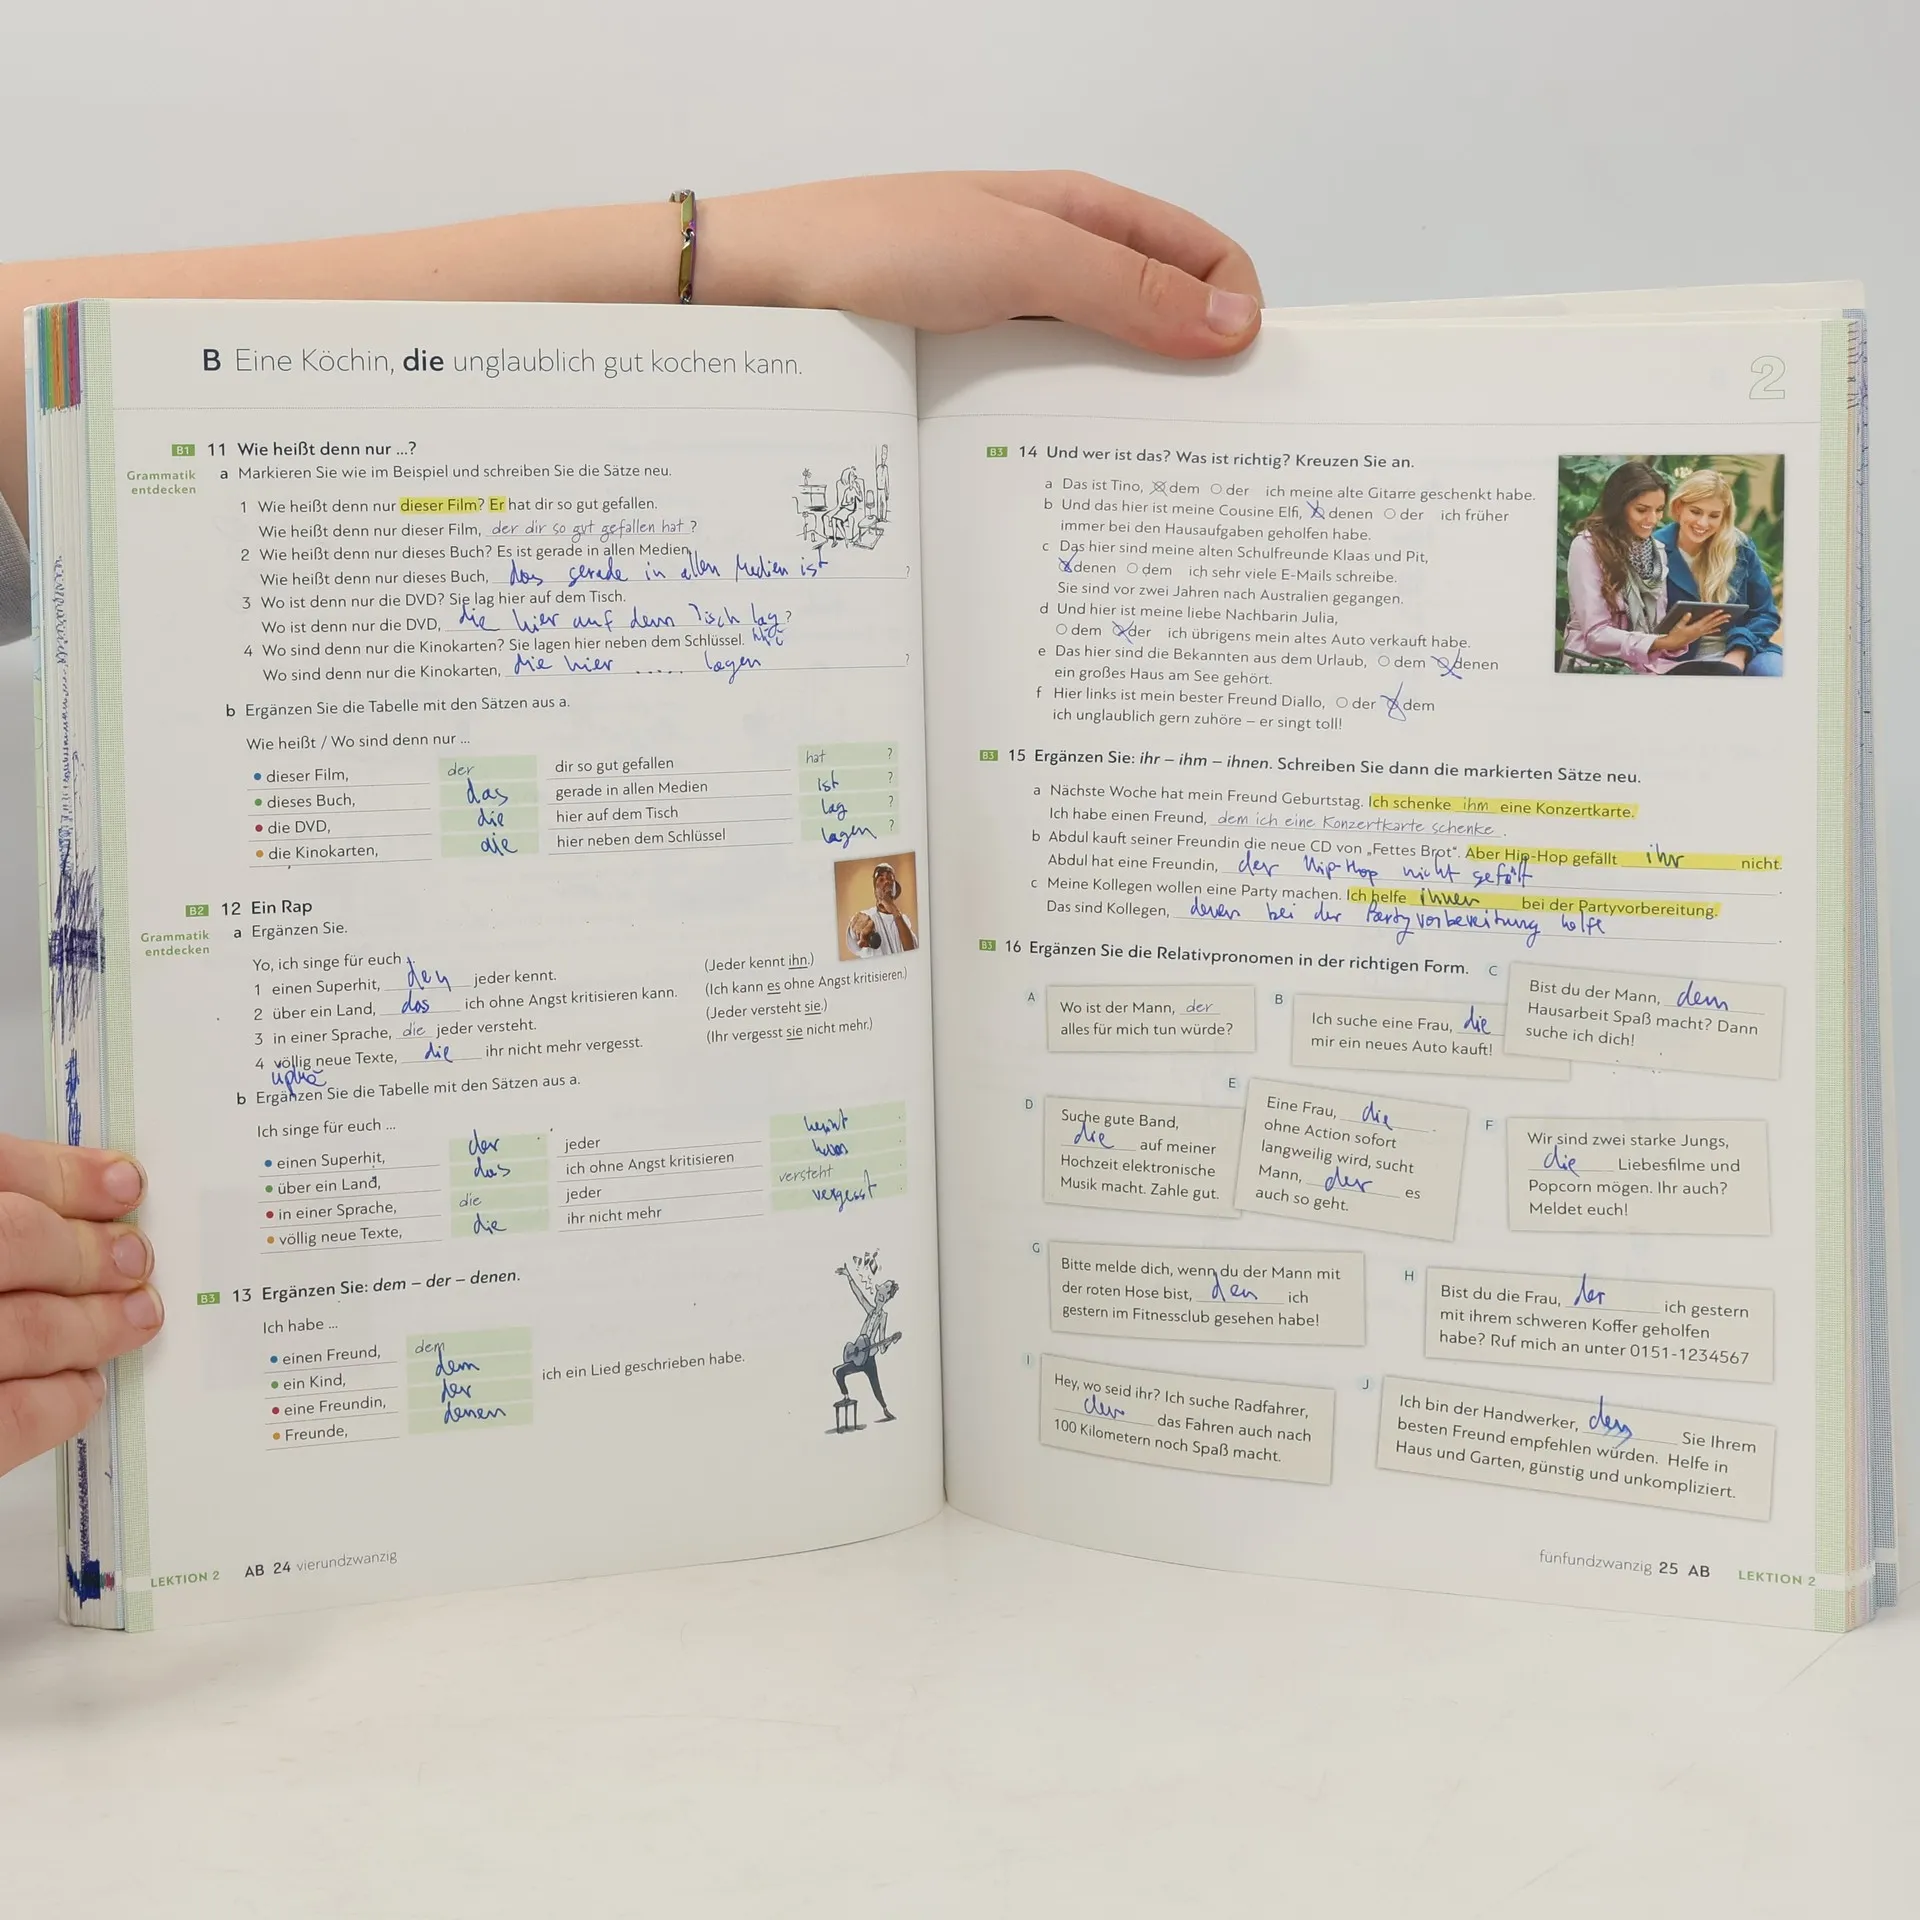 B Eine Köchin, die unglaublich gut kochen kann.
B1 11 Wie heißt denn nur ...?
Grammatik entdecken
a Markieren Sie wie im Beispiel und schreiben Sie die Sätze neu.
1 Wie heißt denn nur dieser Film? Er hat dir so gut gefallen.
Wie heißt denn nur dieser Film, der dir so gut gefallen hat ?
2 Wie heißt denn nur dieses Buch? Es ist gerade in allen Medien.
Wie heißt denn nur dieses Buch, das gerade in allen Medien ist ?
3 Wo ist denn nur die DVD? Sie lag hier auf dem Tisch.
Wo ist denn nur die DVD, die hier auf dem Tisch lag ?
4 Wo sind denn nur die Kinokarten? Sie lagen hier neben dem Schlüssel.
Wo sind denn nur die Kinokarten, die hier ..... lagen ?
b Ergänzen Sie die Tabelle mit den Sätzen aus a.
Wie heißt / Wo sind denn nur ...
• dieser Film, der dir so gut gefallen hat ?
• dieses Buch, das gerade in allen Medien ist ?
• die DVD, die hier auf dem Tisch lag ?
• die Kinokarten, die hier neben dem Schlüssel lagen ?
B2 12 Ein Rap
Grammatik entdecken
a Ergänzen Sie.
Yo, ich singe für euch ...
1 einen Superhit, den jeder kennt. (Jeder kennt ihn.)
2 über ein Land, das ich ohne Angst kritisieren kann. (Ich kann es ohne Angst kritisieren.)
3 in einer Sprache, die jeder versteht. (Jeder versteht sie.)
4 völlig neue Texte, die ihr nicht mehr vergesst. (Ihr vergesst sie nicht mehr.)
b Ergänzen Sie die Tabelle mit den Sätzen aus a.
Ich singe für euch ...
• einen Superhit, der jeder
• über ein Land, das ich ohne Angst kritisieren
• in einer Sprache, die jeder versteht
• völlig neue Texte, die ihr nicht mehr vergesst
B3 13 Ergänzen Sie: dem – der – denen.
Ich habe ...
• einen Freund, dem
• ein Kind, dem ich ein Lied geschrieben habe.
• eine Freundin, der
• Freunde, denen
LEKTION 2 AB 24 vierundzwanzig
2
B3 14 Und wer ist das? Was ist richtig? Kreuzen Sie an.
a Das ist Tino, dem der ich meine alte Gitarre geschenkt habe.
b Und das hier ist meine Cousine Elfi, denen der ich früher
immer bei den Hausaufgaben geholfen habe.
c Das hier sind meine alten Schulfreunde Klaas und Pit,
denen dem ich sehr viele E-Mails schreibe.
Sie sind vor zwei Jahren nach Australien gegangen.
d Und hier ist meine liebe Nachbarin Julia,
dem der ich übrigens mein altes Auto verkauft habe.
e Das hier sind die Bekannten aus dem Urlaub, dem denen
ein großes Haus am See gehört.
f Hier links ist mein bester Freund Diallo, der dem
ich unglaublich gern zuhöre – er singt toll!
B3 15 Ergänzen Sie: ihr – ihm – ihnen. Schreiben Sie dann die markierten Sätze neu.
a Nächste Woche hat mein Freund Geburtstag. Ich schenke ihm eine Konzertkarte.
Ich habe einen Freund, dem ich eine Konzertkarte schenke .
b Abdul kauft seiner Freundin die neue CD von „Fettes Brot“. Aber Hip-Hop gefällt ihr nicht.
Abdul hat eine Freundin, der Hip-Hop nicht gefällt .
c Meine Kollegen wollen eine Party machen. Ich helfe ihnen bei der Partyvorbereitung.
Das sind Kollegen, denen bei der Partyvorbereitung helfe .
B3 16 Ergänzen Sie die Relativpronomen in der richtigen Form.
A
Wo ist der Mann, der
alles für mich tun würde?
B
Ich suche eine Frau, die
mir ein neues Auto kauft!
C
Bist du der Mann, dem
Hausarbeit Spaß macht? Dann
suche ich dich!
D
Suche gute Band,
die auf meiner
Hochzeit elektronische
Musik macht. Zahle gut.
E
Eine Frau, die
ohne Action sofort
langweilig wird, sucht
Mann, der es
auch so geht.
F
Wir sind zwei starke Jungs,
die Liebesfilme und
Popcorn mögen. Ihr auch?
Meldet euch!
G
Bitte melde dich, wenn du der Mann mit
der roten Hose bist, den ich
gestern im Fitnessclub gesehen habe!
H
Bist du die Frau, der ich gestern
mit ihrem schweren Koffer geholfen
habe? Ruf mich an unter 0151-1234567
I
Hey, wo seid ihr? Ich suche Radfahrer,
das Fahren auch nach
100 Kilometern noch Spaß macht.
J
Ich bin der Handwerker, Sie Ihrem
besten Freund empfehlen würden. Helfe in
Haus und Garten, günstig und unkompliziert.
fünfundzwanzig 25 AB LEKTION 2